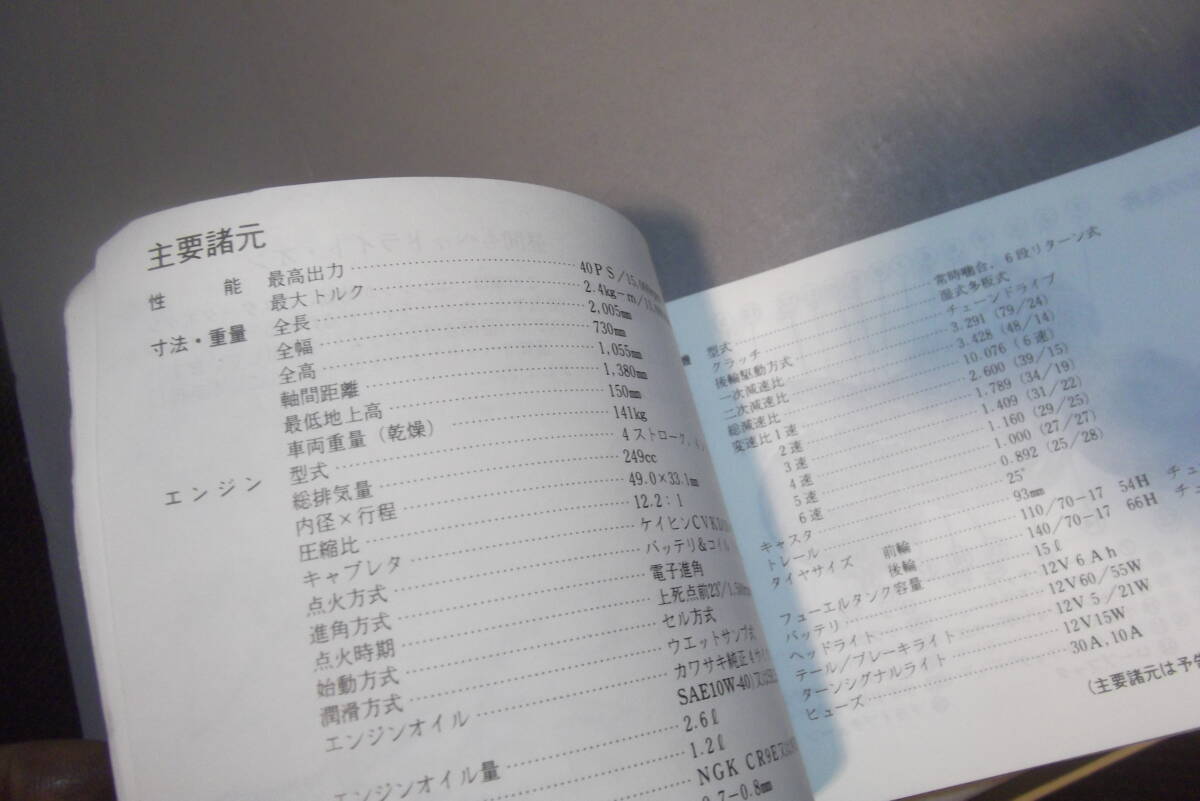 主要諸元
性 能 最高出力 40PS/15,000
最大トルク 2.4kg-m/11,
寸法・重量 全長 2,005㎜
全幅 730㎜
全高 1,055㎜
軸間距離 1,380㎜
最低地上高 150㎜
車両重量(乾燥) 141kg
エンジン 型式 4ストローク,
総排気量 249cc
内径×行程 49.0×33.1㎜
圧縮比 12.2:1
キャブレタ ケイヒンCVK
点火方式 バッテリ&コイル
進角方式 電子進角
点火時期 上死点前23°/1,
始動方式 セル方式
潤滑方式 ウエットサンプ式
エンジンオイル カワサキ純正4サイ
SAE10W-40)又は
エンジンオイル量 2.6ℓ
1.2ℓ
NGK CR9E又は
0.7-0.8㎜
機 型式 常時噛合,6段リターン式
クラッチ 湿式多板式
後輪駆動方式 チェーンドライブ
一次減速比 3.291(79/24)
二次減速比 3.428(48/14)
総減速比 10.076(6速)
変速比1速 2.600(39/15)
2速 1.789(34/19)
3速 1.409(31/22)
4速 1.160(29/25)
5速 1.000(27/27)
6速 0.892(25/28)
キャスタ 25°
トレール 93㎜
タイヤサイズ 前輪 110/70-17 54H チュ
後輪 140/70-17 66H チュ
フューエルタンク容量 15ℓ
バッテリ 12V6Ah
ヘッドライト 12V60/55W
テール/ブレーキライト 12V5/21W
ターンシグナルライト 12V15W
ヒューズ 30A,10A
(主要諸元は予告